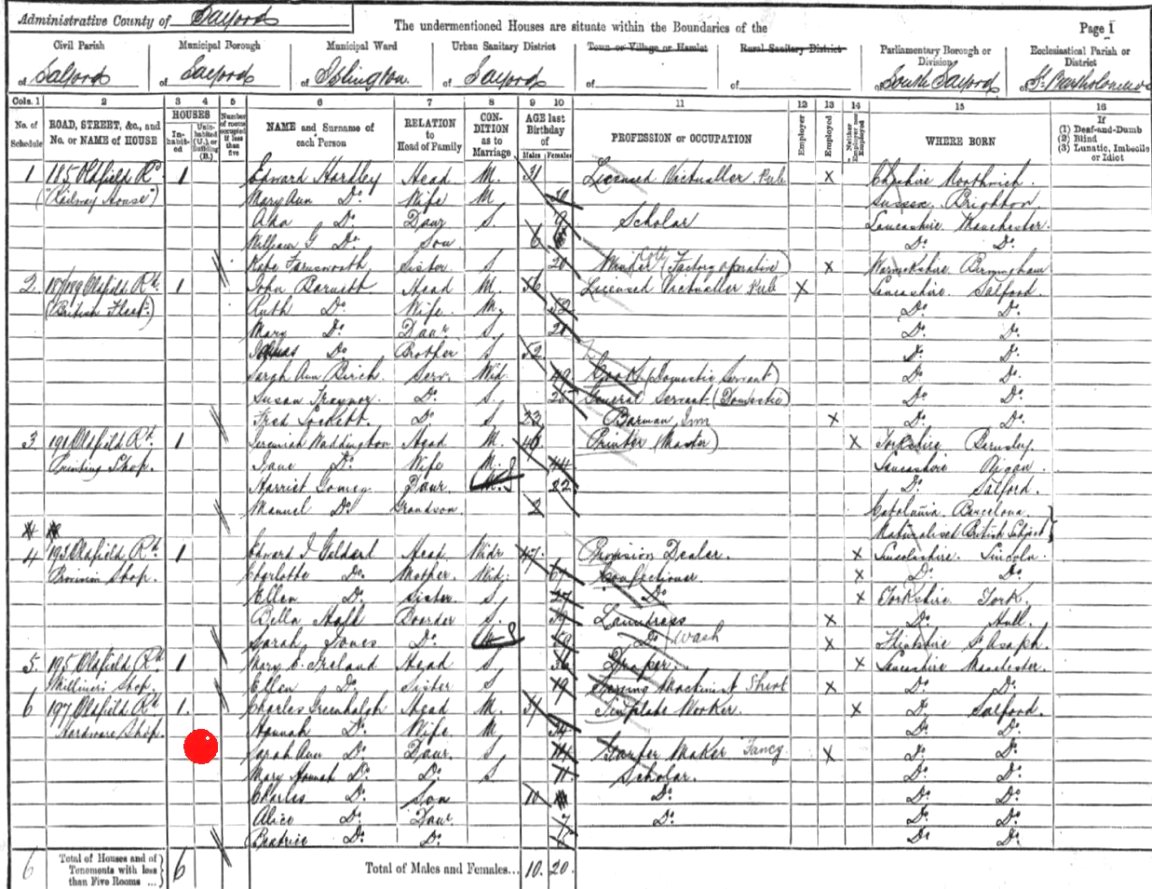 Administrative County of Salford
The undermentioned Houses are situate within the Boundaries of the
Page 1
Civil Parish
of Salford
Municipal Borough
of Salford
Municipal Ward
of Islington
Urban Sanitary District
of Salford
Town or Village or Hamlet
of
Rural Sanitary District
of
Parliamentary Borough or Division
of South Salford
Ecclesiastical Parish or District
of St. Bartholomews
Cols. 1 2 3 4 5 6 7 8 9 10 11 12 13 14 15 16
No. of Schedule
ROAD, STREET, &c., and No. or NAME of HOUSE
HOUSES
In-habit-ed
Unin-habited (U.), or Building (B.)
Number of rooms occupied if less than five
NAME and Surname of each Person
RELATION to Head of Family
CON-DITION as to Marriage
AGE last Birthday of
Males Females
PROFESSION or OCCUPATION
Employer
Employed
Neither Employer nor Employed
WHERE BORN
If
(1) Deaf-and-Dumb
(2) Blind
(3) Lunatic, Imbecile or Idiot
1 185 Oldfield Rd. 1 Edward Hardley Head M. 31 Licensed Victualler Pub X Cheshire Northwich
("Railway House") Mary Ann Do. Wife M Sussex Brighton
Do. Daur S. Scholar Lancashire Manchester
William G. Do. Son 6 Do. Do.
Kate Farnsworth Sister S 20 (Factory operative) X Warwickshire Birmingham
2 187/189 Oldfield Rd. 1 John Barnett Head M. 56 Licensed Victualler Pub X Lancashire Salford
(British Fleet.) Ruth Do. Wife M. 52 Do. Do.
Mary Do. Daur S. 21 Do. Do.
Do. Brother S 52 Do. Do.
Sarah Ann Birch Serv. Wid. 49 Cook (Domestic Servant) Do. Do.
Susan Traynor Do. S. 25 General Servant (Domestic) Do. Do.
Fred Lockett Do. S 23 Barman Inn X Do. Do.
3 191 Oldfield Rd. 1 Jeremiah Waddington Head M. 46 Printer (Master) X Yorkshire Barnsley
Printing Shop. Jane Do. Wife M. 44 Lancashire Wigan
Harriet Gomez Daur S 22 Do. Salford.
Manuel Do. Grandson 2 Catalunia Barcelona
Naturalised British Subject
4 193 Oldfield Rd. 1 Edward J. Geldard Head Widr 47 Provision Dealer. X Lincolnshire Lincoln
Provision Shop. Charlotte Do. Mother. Wid. 67 Confectioner X Do. Do.
Ellen Do. Sister S 27 Do. X Yorkshire York
Bella Hall Boarder S. 39 Laundress X Do. Hull
Sarah Jones Do. S Do. Wash X Flintshire St. Asaph
5 195 Oldfield Rd. 1 Mary E. Ireland Head S 36 Draper. X Lancashire Manchester
Milliners Shop Ellen Do. Sister S 19 Sewing Machinist Shirt X Do. Do.
6 197 Oldfield Rd. 1 Charles Greenhalgh Head M. Tinplate Worker. X Do. Salford.
Hardware Shop. Hannah Do. Wife M 34 Do. Do.
Sarah Ann Do. Daur. S 14 Maker Fancy X Do. Do.
Mary Hannah Do. Do. S. 11 Scholar. Do. Do.
Charles Do. Son 10 Do. Do. Do.
Alice Do. Daur 7 Do. Do. Do.
Beatrice Do. Do. Do. Do.
6 Total of Houses and of Tenements with less than Five Rooms ... 6 Total of Males and Females... 10. 20.